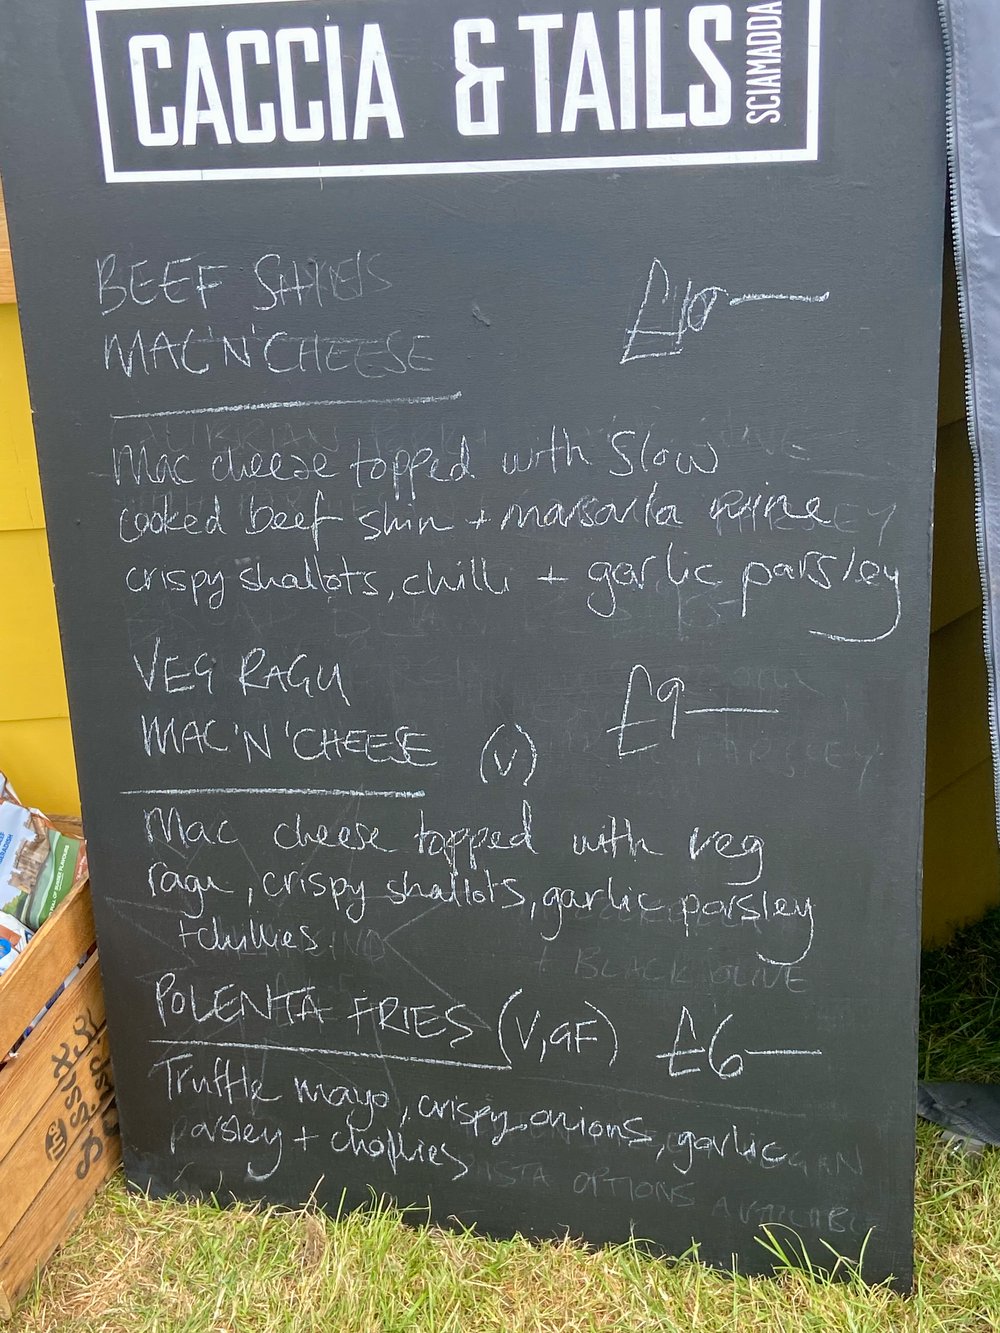 CACCIA & TAILS
SCIAMADDA
BEEF SHINS
MAC'N'CHEESE £10—
Mac cheese topped with Slow
cooked beef shin + marsarla wine
crispy shallots, chilli + garlic parsley
VEG RAGU
MAC'N'CHEESE (V) £9—
Mac cheese topped with veg
ragu, crispy shallots, garlic parsley
+chillies
+ BLACK OLIVE
POLENTA FRIES (V, GF) £6—
Truffle mayo, crispy onions, garlic
parsley + chollies
OPTIONS AVAILABLE